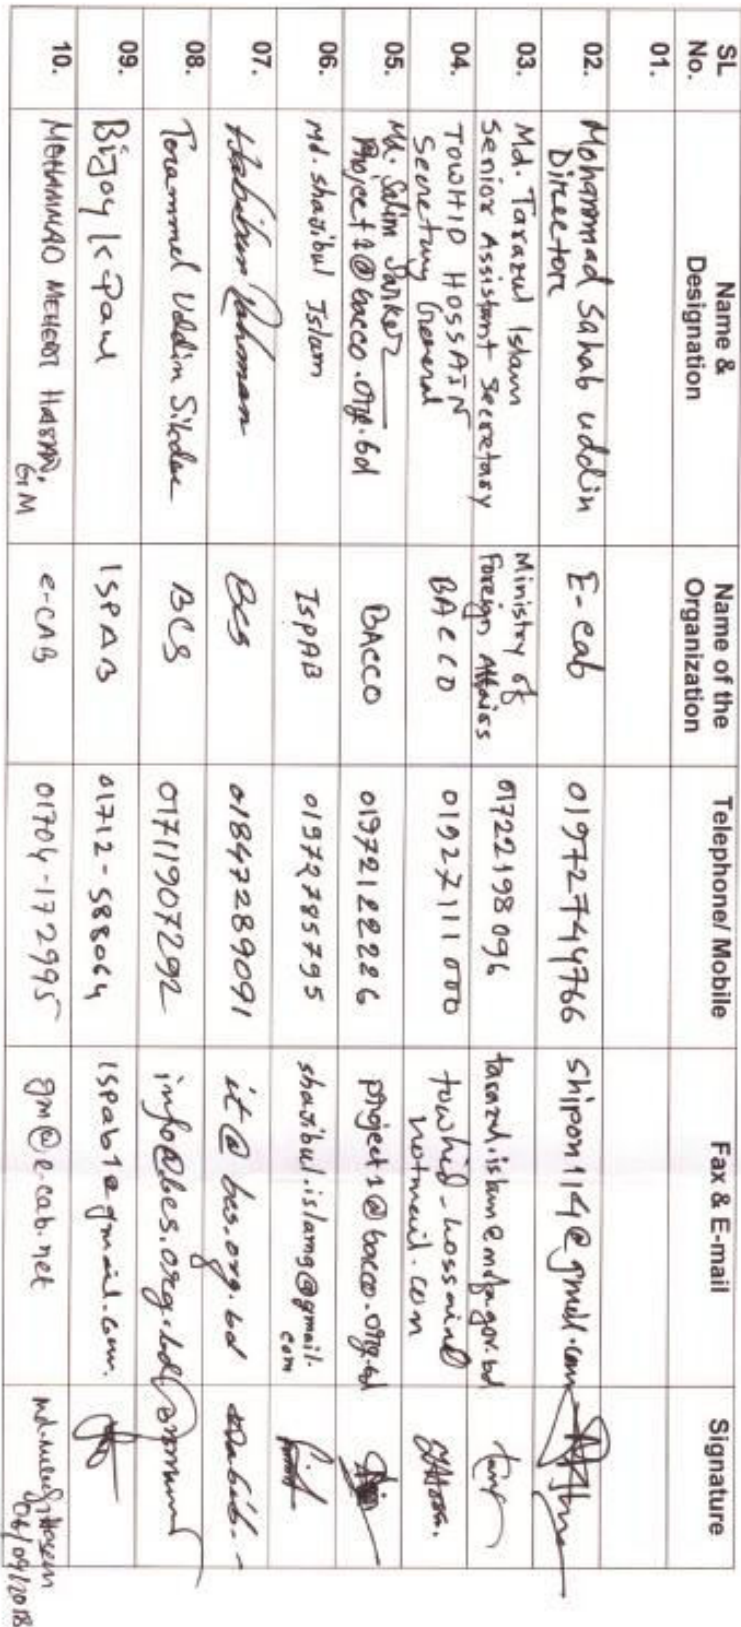 SL No. Name & Designation Name of the Organization Telephone/ Mobile Fax & E-mail Signature
01.
02. Mohammad Sahab uddin Director E-cab 01972744766 shipon114@gmail.com
03. Md. Tarazul Islam Senior Assistant Secretary Ministry of Foreign Affairs 01722198096 tarazul.islam@mofa.gov.bd
04. TOWHID HOSSAIN Secretary General BACCO 01927111000 hotmail.com
05. Md. Salim Sarker Project1@bacco.org.bd BACCO project1@bacco.org.bd
06. Md. shajibul Islam IspAB 01972785795 shajibul.islam9@gmail.com
07. Habibur Rahman BCS 01847289091 it@bcs.org.bd Habib.
08. Uddin Sikder BCS 01711907292 info@bcs.org.bd
09. Bijoy K Paul ISPAB 01712-588064 ispab1@gmail.com.
10. MOHAMMAD MEHEDI HASAN, GM e-CAB 01704-172995 gm@e-cab.net 06/09/2018